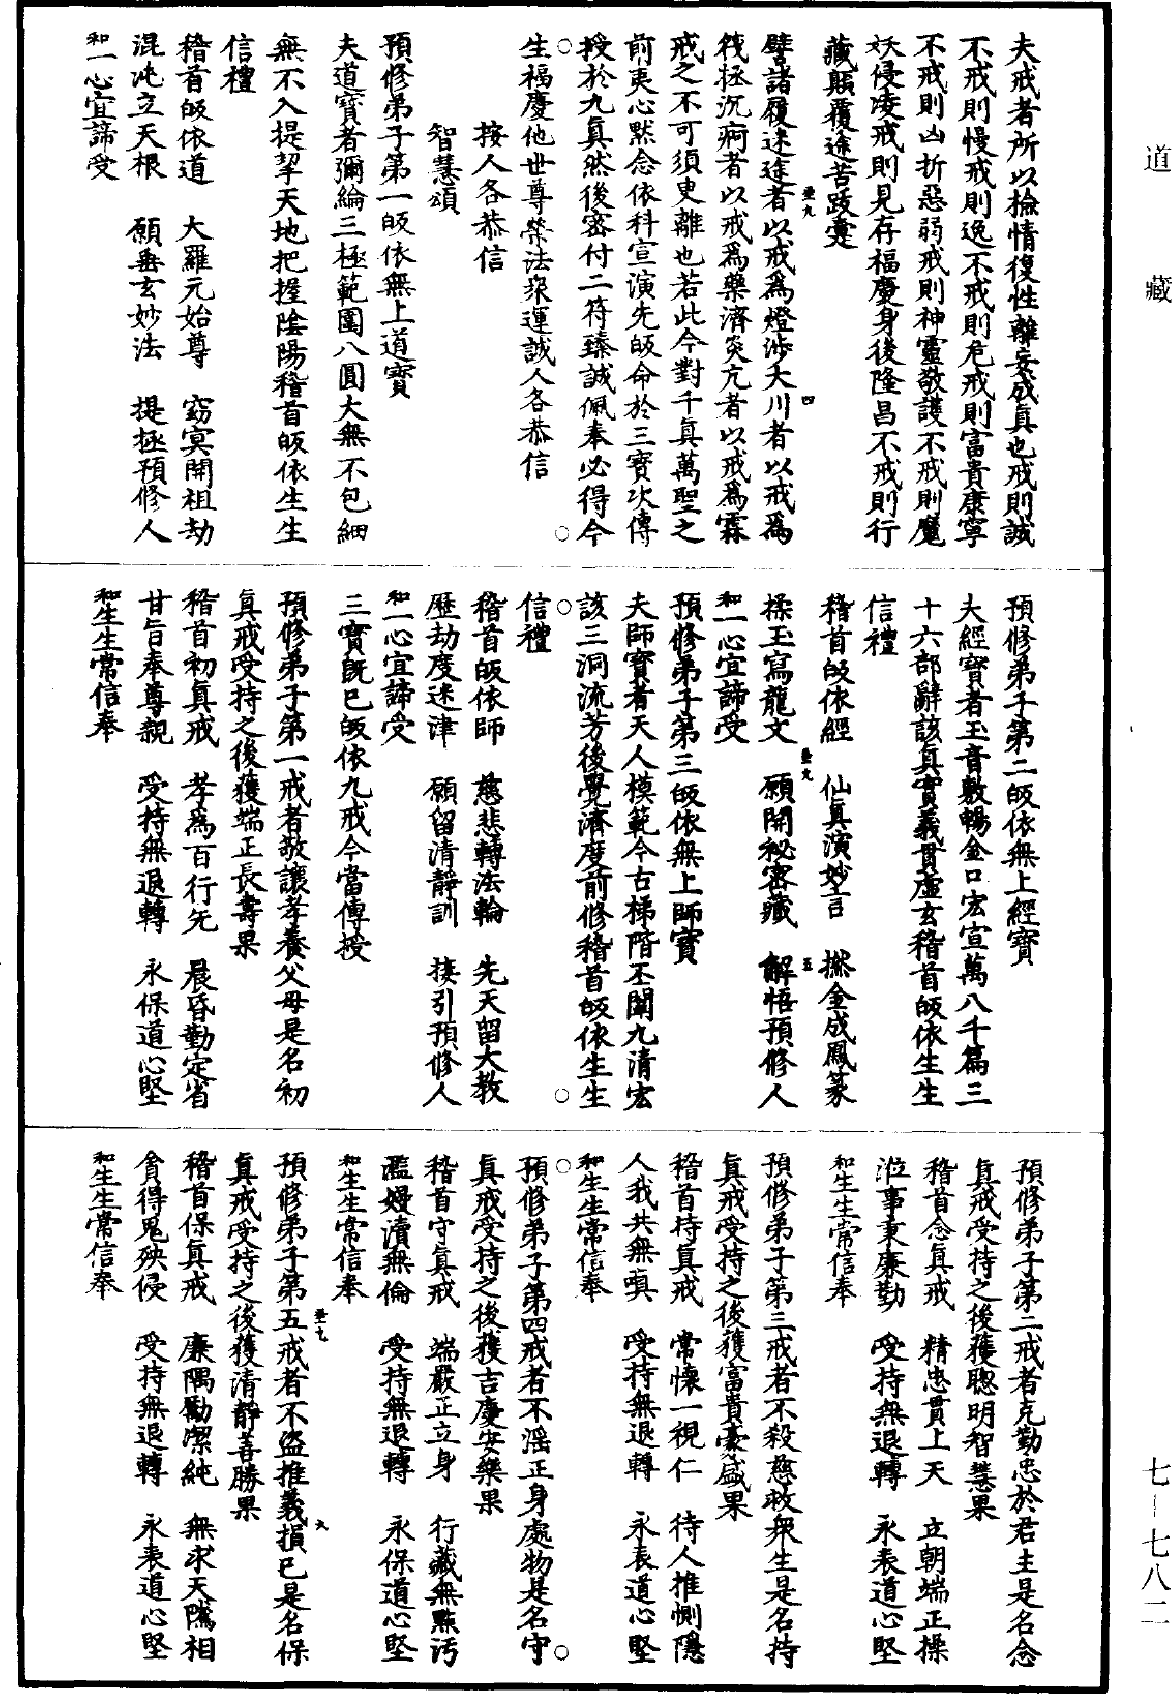 道藏
夫戒者所以檢情復性離妄成真也戒則誠
不戒則慢戒則逸不戒則危戒則富貴康寧
不戒則凶折惡弱戒則神靈敬護不戒則魔
妖侵凌戒則見存福慶身後隆昌不戒則行
藏顛覆途苦跂
譬諸履迷途者以戒為燈涉大川者以戒為
筏拯沉痾者以戒為藥濟炎亢者以戒為霖
戒之不可須臾離也若此今對千真萬聖之
前夷心默念依科宣演先皈命於三寶次傳
授於九真然後密付二符臻誠佩奉必得今
生福慶他世尊榮法衆運誠人各恭信
按人各恭信
智慧頌
預修弟子第一皈依無上道寶
夫道寶者彌綸三極範圍八圓大無不包細
無不入提挈天地把握陰陽稽首皈依生生
信禮
稽首皈依道 大羅元始尊 窈冥開祖劫
混沌立天根 願垂玄妙法 提拯預修人
和一心宜諦受
預修弟子第二皈依無上經寶
大經寶者玉音敷暢金口宏宣萬八千篇三
十六部辭該真實義貫虛玄稽首皈依生生
信禮
稽首皈依經 仙真演妙言 撚金成鳳篆
揉玉寫龍文 願開祕密藏 解悟預修人
和一心宜諦受
預修弟子第三皈依無上師寶
夫師寶者天人模範今古梯階丕闡九清宏
該三洞流芳後覺濟度前修稽首皈依生生
信禮
稽首皈依師 慈悲轉法輪 先天留大教
歷劫度迷津 願留清靜訓 接引預修人
和一心宜諦受
三寶既已皈依九戒今當傳授
預修弟子第一戒者敬讓孝養父母是名初
真戒受持之後獲端正長壽果
稽首初真戒 孝為百行先 晨昏勤定省
甘旨奉尊親 受持無退轉 永保道心堅
和生生常信奉
預修弟子第二戒者克勤忠於君主是名念
真戒受持之後獲聰明智慧果
稽首念真戒 精忠貫上天 立朝端正操
涖事秉廉勤 受持無退轉 永表道心堅
和生生常信奉
預修弟子第三戒者不殺慈救衆生是名持
真戒受持之後獲富貴豪盛果
稽首持真戒 常懷一視仁 待人推惻隱
人我共無嗔 受持無退轉 永表道心堅
和生生常信奉
預修弟子第四戒者不淫正身處物是名守
真戒受持之後獲吉慶安樂果
稽首守真戒 端嚴正立身 行藏無點汚
濫嫚瀆無倫 受持無退轉 永保道心堅
和生生常信奉
預修弟子第五戒者不盜推義損已是名保
真戒受持之後獲清靜善勝果
稽首保真戒 廉隅勵潔純 無求天隲相
貪得鬼殃侵 受持無退轉 永表道心堅
和生生常信奉
七-七八二